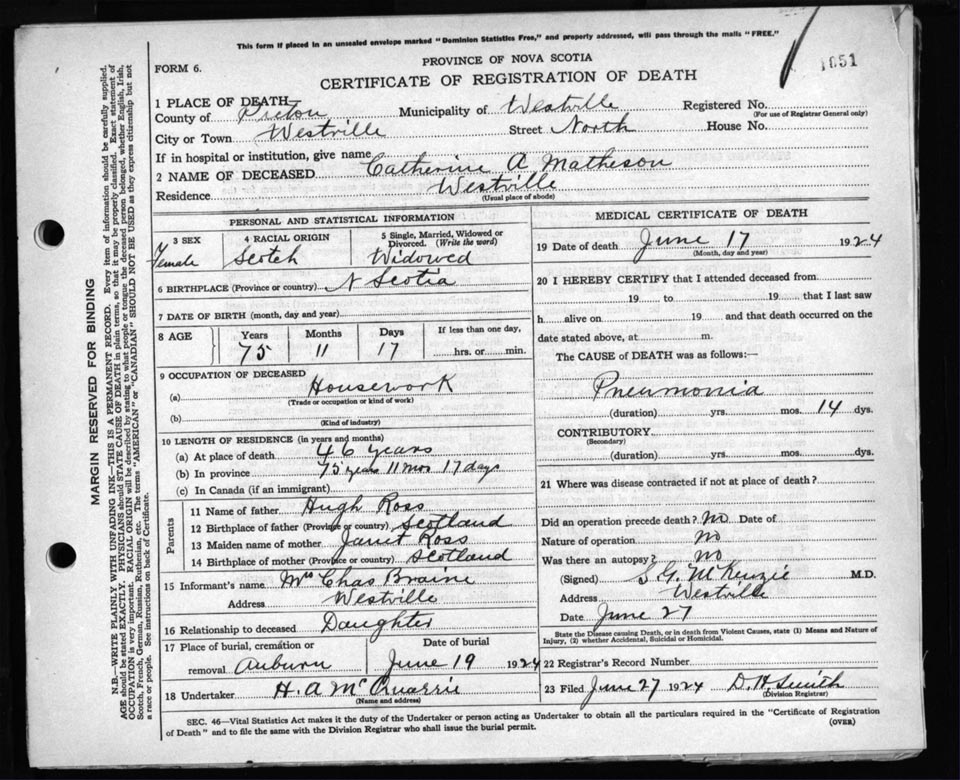 This form if placed in an unsealed envelope marked "Dominion Statistics Free," and property addressed, will pass through the mails "FREE."
PROVINCE OF NOVA SCOTIA
FORM 6.
CERTIFICATE OF REGISTRATION OF DEATH
1651
1 PLACE OF DEATH
County of Pictou Municipality of Westville Registered No.
(For use of Registrar General only)
City or Town Westville Street North House No.
If in hospital or institution, give name
2 NAME OF DECEASED Catherine A Matheson
Residence Westville
(Usual place of abode)
PERSONAL AND STATISTICAL INFORMATION
3 SEX 4 RACIAL ORIGIN 5 Single, Married, Widowed or Divorced. (Write the word)
Female Scotch Widowed
6 BIRTHPLACE (Province or country) N Scotia
7 DATE OF BIRTH (month, day and year)
8 AGE Years Months Days If less than one day,
75 11 17 hrs. or min.
9 OCCUPATION OF DECEASED
(a) Housework
(Trade or occupation or kind of work)
(b)
(Kind of industry)
10 LENGTH OF RESIDENCE (in years and months)
(a) At place of death 46 years
(b) In province 75 years 11 mos 17 days
(c) In Canada (if an immigrant)
Parents
11 Name of father Hugh Ross
12 Birthplace of father (Province or country) Scotland
13 Maiden name of mother Janet Ross
14 Birthplace of mother (Province or country) Scotland
15 Informant's name Mrs Chas Braine
Address Westville
16 Relationship to deceased Daughter
17 Place of burial, cremation or removal Auburn Date of burial June 19 1924
18 Undertaker H. A McQuarrie
(Name and address)
MEDICAL CERTIFICATE OF DEATH
19 Date of death June 17 1924
(Month, day and year)
20 I HEREBY CERTIFY that I attended deceased from
19 to 19 that I last saw
h alive on 19 and that death occurred on the
date stated above, at m.
The CAUSE of DEATH was as follows:—
Pneumonia
(duration) yrs. mos. 14 dys.
CONTRIBUTORY
(Secondary)
(duration) yrs. mos. dys.
21 Where was disease contracted if not at place of death?
Did an operation precede death? No Date of
Nature of operation No
Was there an autopsy? No
(Signed) S G. McKenzie M.D.
Address Westville
Date June 27
State the Disease causing Death, or in death from Violent Causes, state (1) Means and Nature of
Injury, (2) whether Accidental, Suicidal or Homicidal.
22 Registrar's Record Number
23 Filed June 27 1924 D. H. Smith
(Division Registrar)
SEC. 46—Vital Statistics Act makes it the duty of the Undertaker or person acting as Undertaker to obtain all the particulars required in the "Certificate of Registration
of Death" and to file the same with the Division Registrar who shall issue the burial permit. (OVER)
MARGIN RESERVED FOR BINDING
N.B.—WRITE PLAINLY WITH UNFADING INK—THIS IS A PERMANENT RECORD. Every item of information should be carefully supplied.
AGE should be stated EXACTLY. PHYSICIANS should STATE CAUSE OF DEATH in plain terms, so that it may be properly classified. Exact statement of
OCCUPATION is very important. RACIAL ORIGIN will be described by stating to what people or tongue the deceased person belonged, whether English, Irish,
Scotch, French, German, Russian, Ruthenian, etc. The terms "AMERICAN" or "CANADIAN" SHOULD NOT BE USED as they express citizenship but not
a race or people. See instructions on back of Certificate.